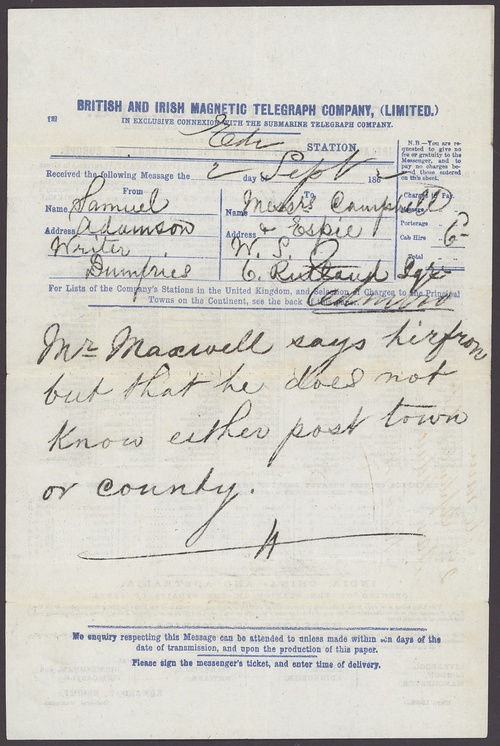 BRITISH AND IRISH MAGNETIC TELEGRAPH COMPANY, (LIMITED.)
IN EXCLUSIVE CONNEXION WITH THE SUBMARINE TELEGRAPH COMPANY.
Edr STATION,
N.B.—You are requested to give no fee or gratuity to the Messenger, and to pay no charges beyond those entered on this sheet.
Received the following Message the 2 day of Sept 186
From
Name Samuel
Address Adamson
Writer
Dumfries
To
Name Messrs Campbell
Address & Espie
W. S.
C. Rutland Sqr
Edinbro
Charges to Pay.
Porterage
Cab Hire 6
Total
For Lists of the Company's Stations in the United Kingdom, and Selection of Charges to the Principal
Towns on the Continent, see the back
Mr Maxwell says
but that he does not
know either post town
or county.
No enquiry respecting this Message can be attended to unless made within days of the
date of transmission, and upon the production of this paper.
Please sign the messenger's ticket, and enter time of delivery.